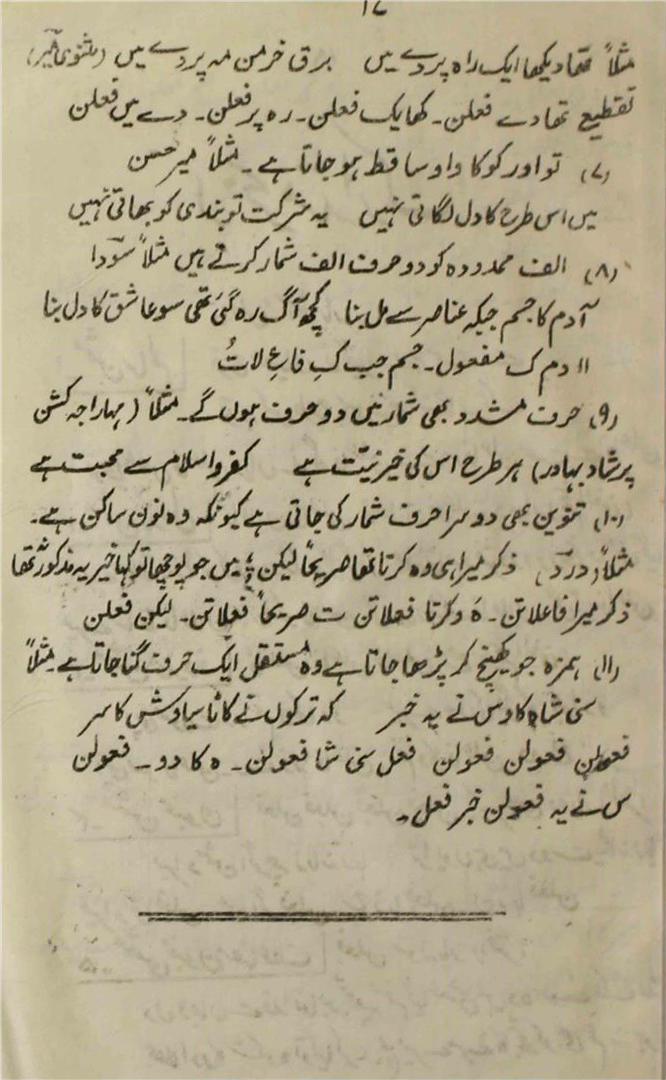 ۱۷
مثلاً تھا دیکھا ایک راہ پردے میں برق خرمن مہ پردے میں (مثنوی میر)
تقطیع تھادے فعلن۔ کھایک فعلن۔ رہ پر فعلن۔ دے میں فعلن
(۷) تو اور کو کا واو ساقط ہو جاتا ہے۔ مثلاً میر حسن
میں اس طرح کا دل لگاتی نہیں یہ شرکت تو بندی کو بھاتی نہیں
(۸) الف ممدودہ کو دو حرف الف شمار کرتے ہیں مثلاً سودا
آدم کا جسم جبکہ عناصر سے مل بنا کچھ آگ رہ گئی تھی سو عاشق کا دل بنا
اا دم ک مفعول۔ جسم جب کِ فاعِ لاتُ
(۹) حرف مشدد بھی شمار میں دو حرف ہوں گے۔ مثلاً (مہاراجہ کشن
پرشاد بہادر) ہر طرح اس کی خیر نیّت ہے کفر و اسلام سے محبت ہے
(۱۰) تنوین بھی دوسرا حرف شمار کی جاتی ہے کیونکہ وہ نون ساکن ہے۔
مثلاً (درد) ذکر میرا ہی وہ کرتا تھا صریحاً لیکن ؛ میں جو پوچھا تو کہا خیر یہ مذکور نہ تھا
ذکر میرا فاعلاتن۔ ہَ وکرتا فعلاتن ت صریحاً فعلاتن۔ لیکن فعلن
(۱۱) ہمزہ جو کھینچ کر پڑھا جاتا ہے وہ مستقل ایک حرف گنا جاتا ہے مثلاً
سنی شاہ کاوس نے یہ خبر کہ ترکوں نے کاٹا سیاوش کا سر
فعولن فعولن فعولن فعل سنی شا فعولن۔ ہ کا دو۔ فعولن
س نے یہ فعولن خبر فعل۔